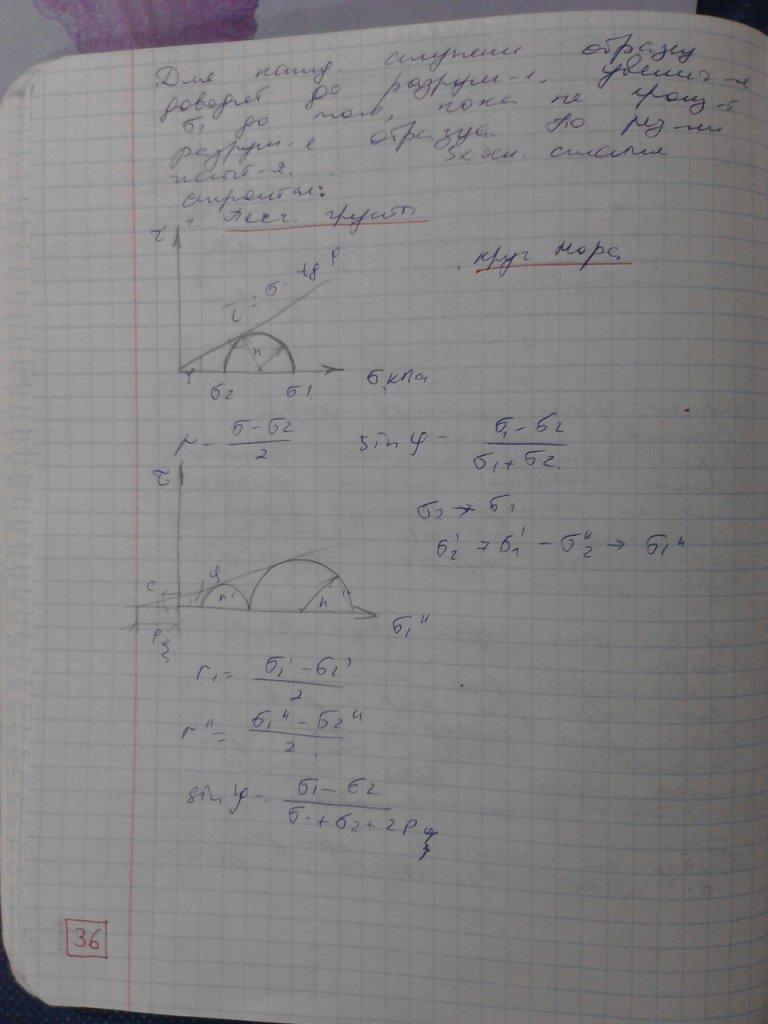 Для кажд. ступени образцу
доводят до разруш-я, увелич-я
σ1 до того, пока не произ-т
разруш-е образца. По рез-там
испыт-я. 3х осн. сжатия
строится:
Песч. грунты
круг Мора
τ
τ = σ · tg φ
r
φ
σ2 σ1
σ, кПа
r = σ - σ2 / 2 sin φ = σ1 - σ2 / σ1 + σ2.
τ
σ2 → σ1
σ2' → σ1' - σ2" → σ1"
c φ r' r"
Pξ
σ1"
r1 = σ1' - σ2' / 2
r" = σ1" - σ2" / 2.
sin φ = σ1 - σ2 / σ1 + σ2 + 2Pξ
36